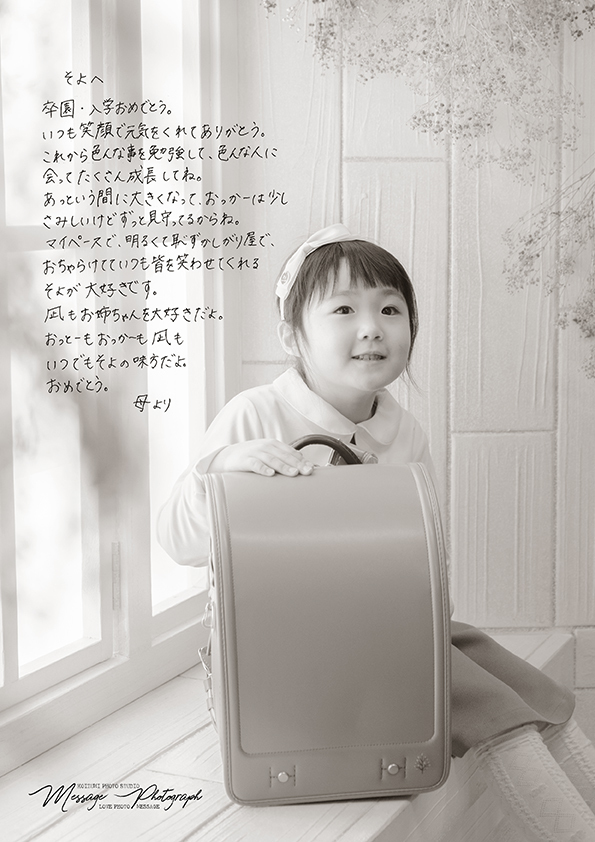 そよへ
卒園・入学おめでとう。
いつも笑顔で元気をくれてありがとう。
これから色んな事を勉強して、色んな人に
会ってたくさん成長してね。
あっという間に大きくなって、おっかーは少し
さみしいけどずっと見守ってるからね。
マイペースで、明るくて恥ずかしがり屋で、
おちゃらけてていつも皆を笑わせてくれる
そよが大好きです。
凪もお姉ちゃんを大好きだよ。
おっとーもおっかーも凪も
いつでもそよの味方だよ。
おめでとう。
母より
KOIZUMI PHOTO STUDIO
Message Photograph
LOVE PHOTO MESSAGE